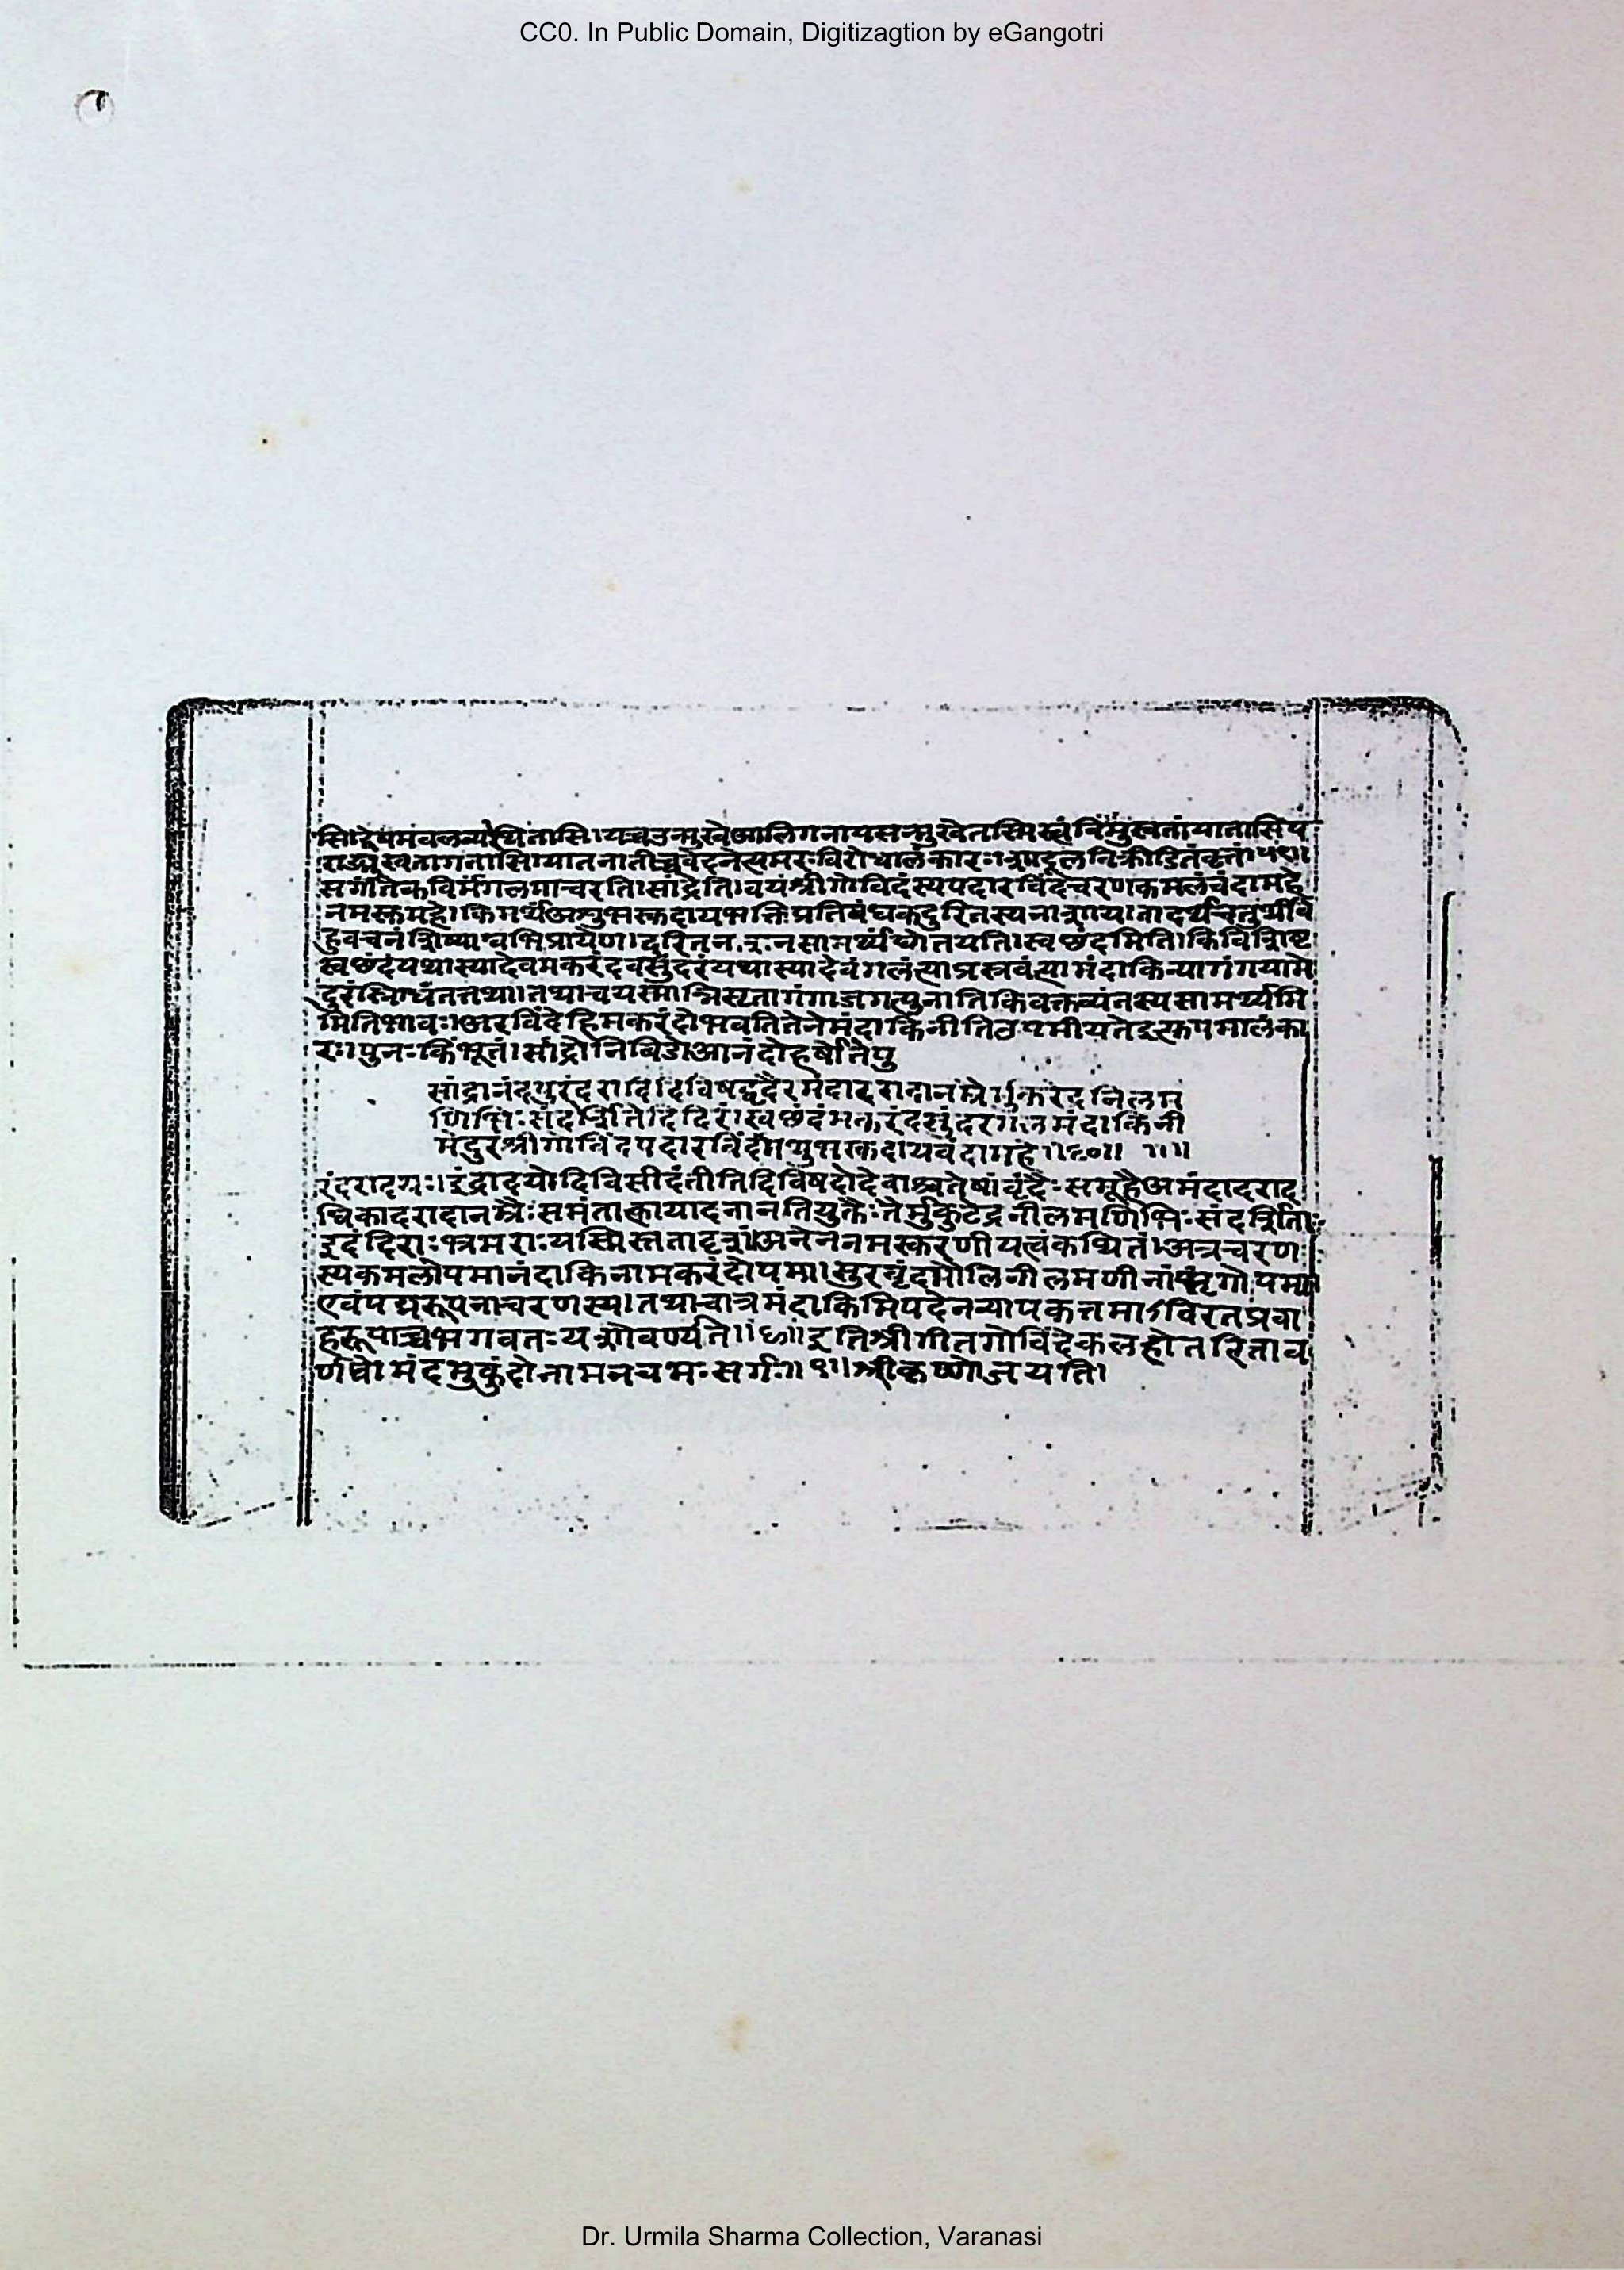 CC0. In Public Domain, Digitizagtion by eGangotri
सि।द्वेषमवलव्यस्थितासि।यच्चउन्मुखेआलिगनायसन्मुखेतस्मिस्त्वंविमुखतांयातासिप
राङ्मुखतागतासि।यातनातीव्रवेदनेत्यमरःविरोधालंकारः।शार्दूलविक्रीडितंवृत्तं।
सर्गांतेकविर्मगलमाचरति।सांद्रेति।वयंश्रीगोविदंस्यपदारविंदंचरणकमलंवंदामहे
नमस्कमहे।किमर्थंअशुभस्कदायभक्तिप्रतिबंधकदुरितस्यनाशाय।तादर्थ्येचतुर्थीब
हुवचनंशिष्याभिप्रायेण।दुरितनाशनसामर्थ्यंद्योतयति।स्वछंदमिति।किंविशिष्टं
स्वछंदंयथास्यादेवमकरंदवत्सुंदरंयथास्यादेवंगलंत्याप्रस्त्रवंत्यामंदाकिन्यागंगयामे
दुरंस्निग्धंतत्तथा।तथाचयस्मान्निसृतागंगाजगत्पुनातिकिंवक्तव्यंतस्यसामर्थ्यमि
मितिभावः।अरविंदेहिमकरंदोभवतितेनेमंदाकिनीतिउपमीयतेइत्युपमालंका
रः।पुनःकिंभूतं।सांद्रोनिबिडोआनंदोहर्षोतेपु
सांद्रानंदपुरंदरादिदिविषद्वृंदैरमंदादरादानंम्रैर्मुकुटेंद्रनीलम
णिभिःसंदर्शितेंदिंदिरं।स्वछंदंमकरंदसुंदरगलन्मंदाकिनी
मेदुरंश्रीगोविंदपदारविंदमशुभस्कदायवंदामहे॥१०॥ ॥॥
रंदरादयः।इंद्रादयोदिविसीदंतीतिदिविषदोदेवाश्चतेषांवृंदैःसमूहैअमंदादराद
धिकादरादानम्रैःसमंतात्कायादनानतियुक्तैःतैर्मुकुटेंद्रनीलमणिभिःसंदर्शिताः
इदंदिराःभ्रमराःयस्मिस्तत्तादृशं।अनेननमस्करणीयत्वंकथितं।अत्रचरण
स्यकमलोपमानंदाकिनामकरंदोपमा।सुरवृंदमौलिनीलमणीनांभृंगोपमा
एवंपद्मरूपताचरणस्य।तथाचात्रमंदाकिमिपदेनव्यापकत्तमाऽविरतप्रवा
हरूपाच्चभगवतःयशोवर्ण्यते॥छ॥इतिश्रीगीतगोविंदेकलहांतरिताव
र्णनेमंदमुकुंदोनामनवमःसर्गः॥९॥श्रीकृष्णोजयति।
Dr. Urmila Sharma Collection, Varanasi